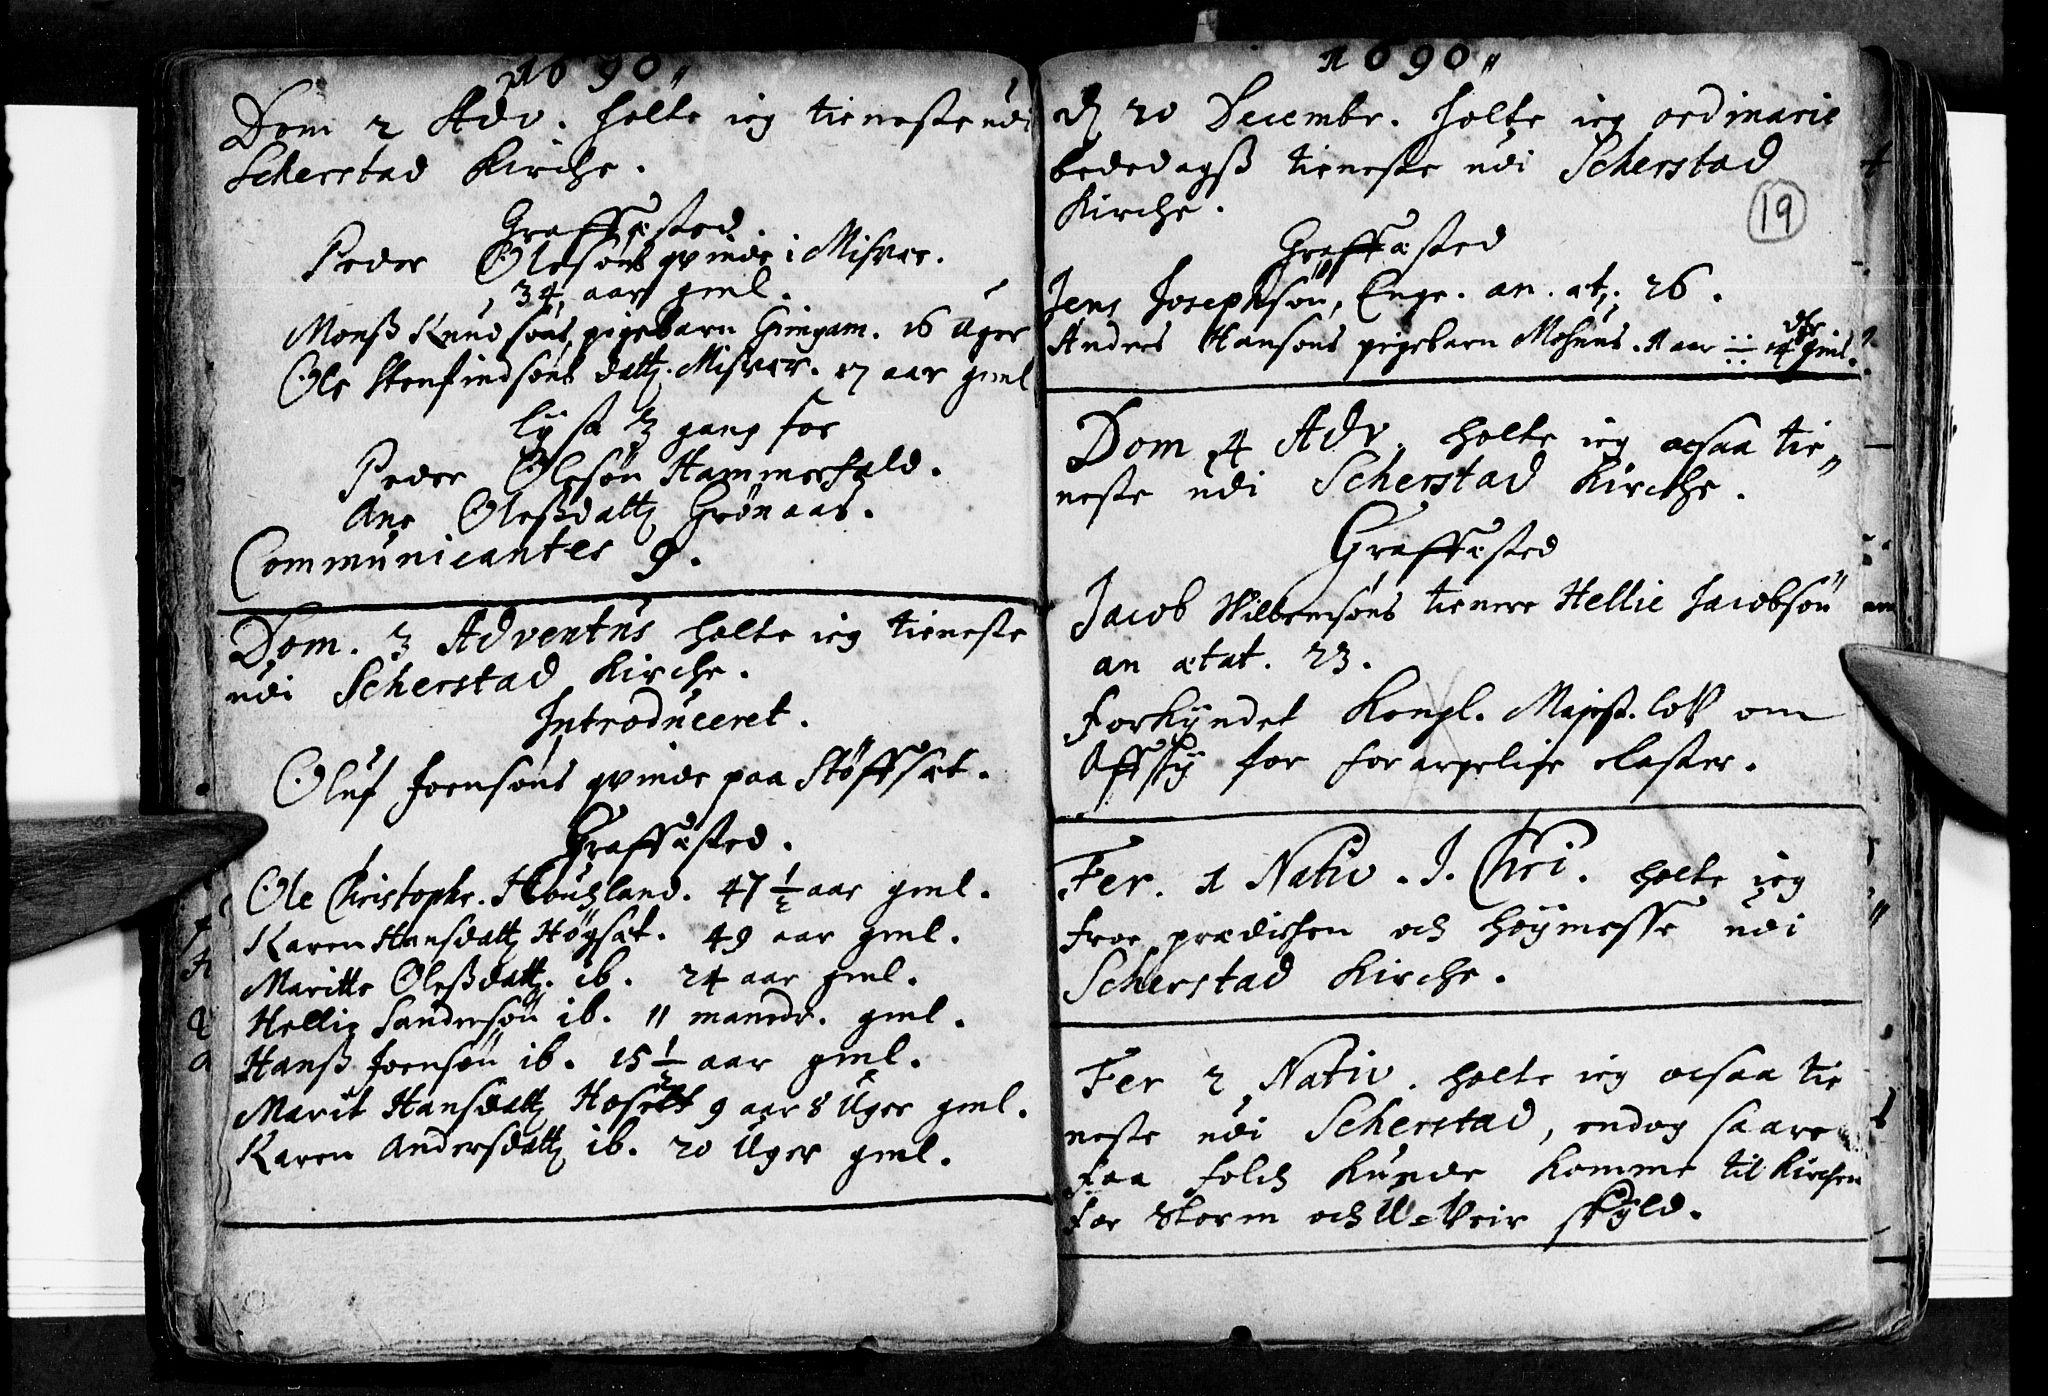 1690
Dom 2 Adv. holte ieg tieneste udi
Scherstad Kirche.
Graffæsted.
Peder Olesøns qvinde i Misvær.
34 aar gml.
Monß Knudsøns pigebarn Gimgam. 16 Uger
Ole Stenfindsøns datt. Misvær. 17 aar gml
Lyst 3 gang for
Peder Olesøn Hammerfald.
Ane Oleßdatt Grønaas.
Communicantes 9.
Dom. 3 Adventus holte ieg tieneste
udi Scherstad Kirche.
Introduceret.
Oluf Joensøns qvinde paa Støffsæt.
Graffæsted.
Ole Christophr. Kouchland. 47 1/2 aar gml.
Karen Hansdatt Høgsæt. 49 aar gml.
Maritte Oleßdatt. ib. 24 aar gml.
Hellie Sandersøn ib. 11 maneder. gml.
Hanß Joensøn ib. 15 1/2 aar gml.
Marit Hansdatt 9 aar 8 Uger gml.
Karen Andersdatt ib. 20 Uger gml.
1690
d 20 Decembr. holte ieg ordinarie
bededagß tieneste udi Scherstad
Kirche.
19
Graffæsted
Jens Josephsøn, Enge. an. æt. 26.
Anders Hansøns pigebarn Mohuus. 1 aar 14 gml.
Dom 4 Adv. holte ieg ocsaa tie
neste udi Scherstad Kirche.
Graffæsted
Jacob Wilbemsøns tienere Hellie Jacobsøn
an ætat. 23.
Forkyndet Kongl. Majest. loV om
Affsky for forargelige laster.
Fer. 1 Nativ. J. Chri. holte ieg
froe prædichen och høymesse udi
Scherstad Kirche.
Fer 2 Nativ. holte ieg ocsaa tie
neste udi Scherstad, endog saare
faa folch Kunde Komme til Kirchen
for Storm och U=Veir skyld.